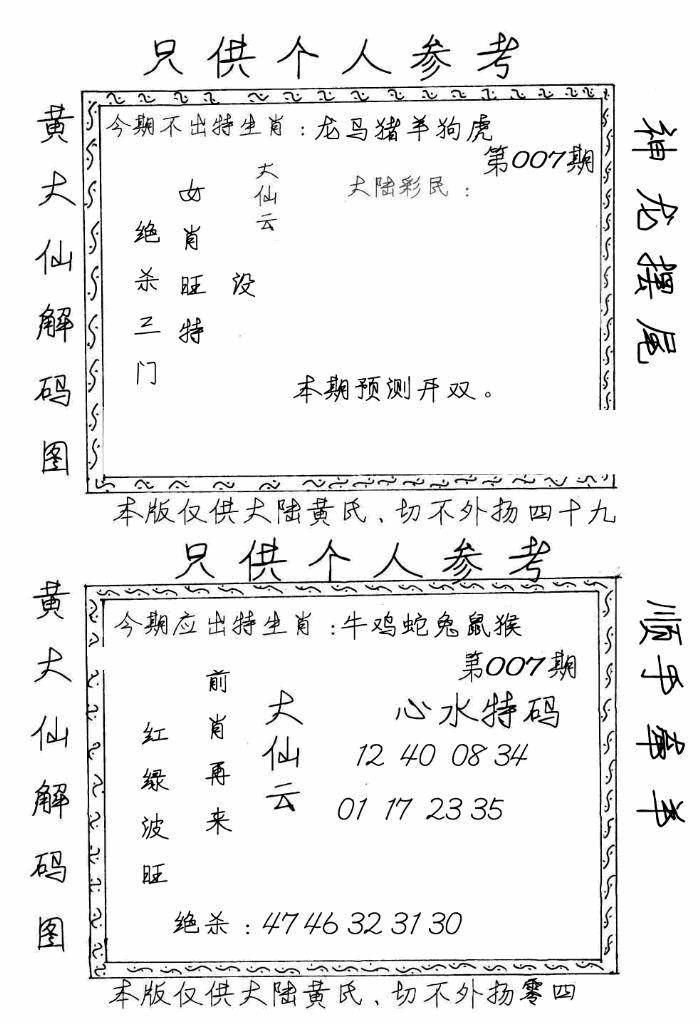 只供个人参考
黄大仙解码图
今期不出特生肖：龙马猪羊狗虎
第007期
大仙云
大陆彩民：
女肖旺特
绝杀三门
设
本期预测开双。
神龙摆尾
本版仅供大陆黄氏、切不外扬四十九
只供个人参考
黄大仙解码图
今期应出特生肖：牛鸡蛇兔鼠猴
第007期
大仙云
前肖再来
红绿波旺
心水特码
12 40 08 34
01 17 23 35
绝杀：47 46 32 31 30
顺手牵羊
本版仅供大陆黄氏、切不外扬零四